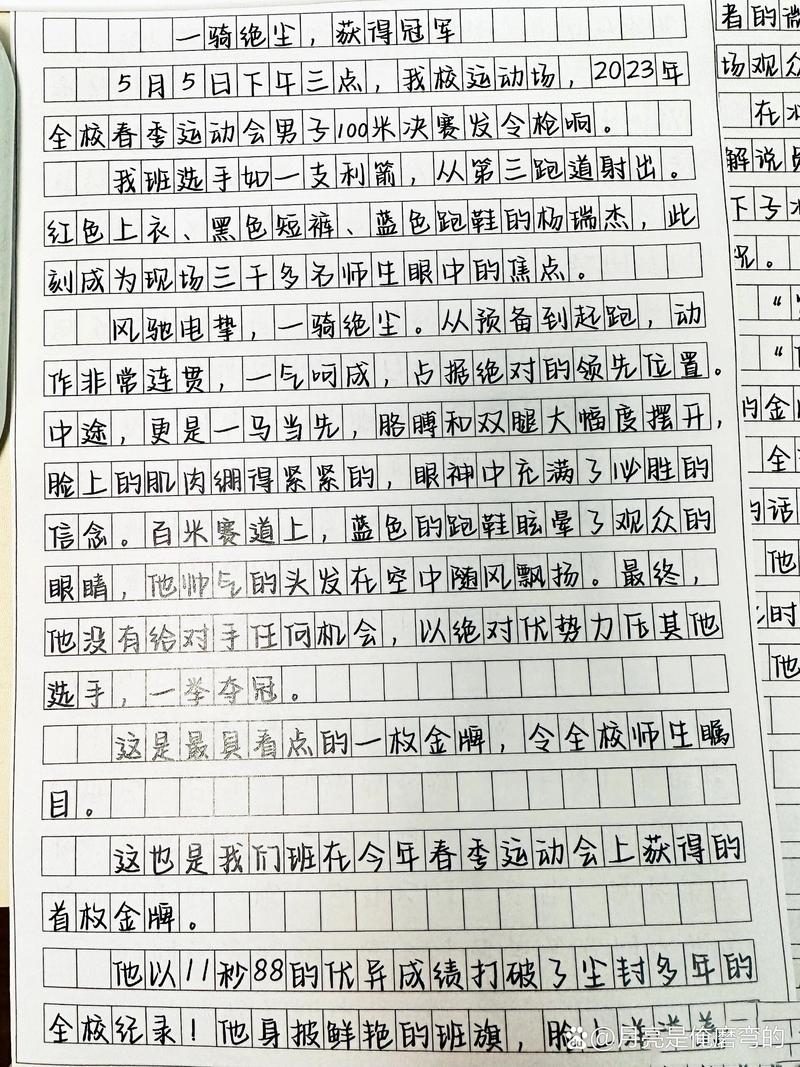 一骑绝尘，获得冠军
5月5日下午三点，我校运动场，2023年
全校春季运动会男子100米决赛发令枪响。
我班选手如一支利箭，从第三跑道射出。
红色上衣、黑色短裤、蓝色跑鞋的杨瑞杰，此
刻成为现场三千多名师生眼中的焦点。
风驰电挚，一骑绝尘。从预备到起跑，动
作非常连贯，一气呵成，占据绝对的领先位置。
中途，更是一马当先，胳膊和双腿大幅度摆开，
脸上的肌肉绷得紧紧的，眼神中充满了必胜的
信念。百米赛道上，蓝色的跑鞋眩晕了观众的
眼睛，他帅气的头发在空中随风飘扬。最终，
他没有给对手任何机会，以绝对优势力压其他
选手，一举夺冠。
这是最具看点的一枚金牌，令全校师生瞩
目。
这也是我们班在今年春季运动会上获得的
首枚金牌。
他以11秒88的优异成绩打破了尘封多年的
全校纪录！他身披鲜艳的班旗，脸上洋溢着
者的微
场观众
在水
解说员
下子
况。
的金
全
的话
他
时
他
@月亮是俺磨弯的